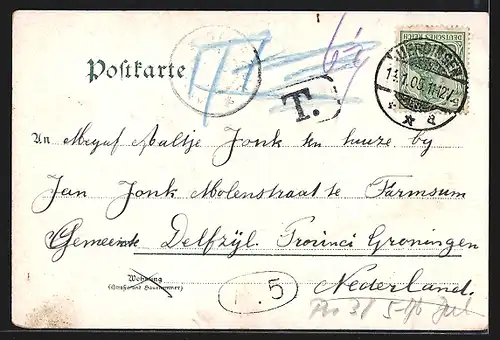 DEUTSCHES REICH
UERDINGEN
11-12V.
* a
Postkarte
T.
An Mejuf Aaltje Jonk ten huize by
Jan Jonk Molenstraat te Farmsum
Gemeente Delfzijl Provinci Groningen
Nederland.
Wohnung
(Straße und Hausnummer)
5